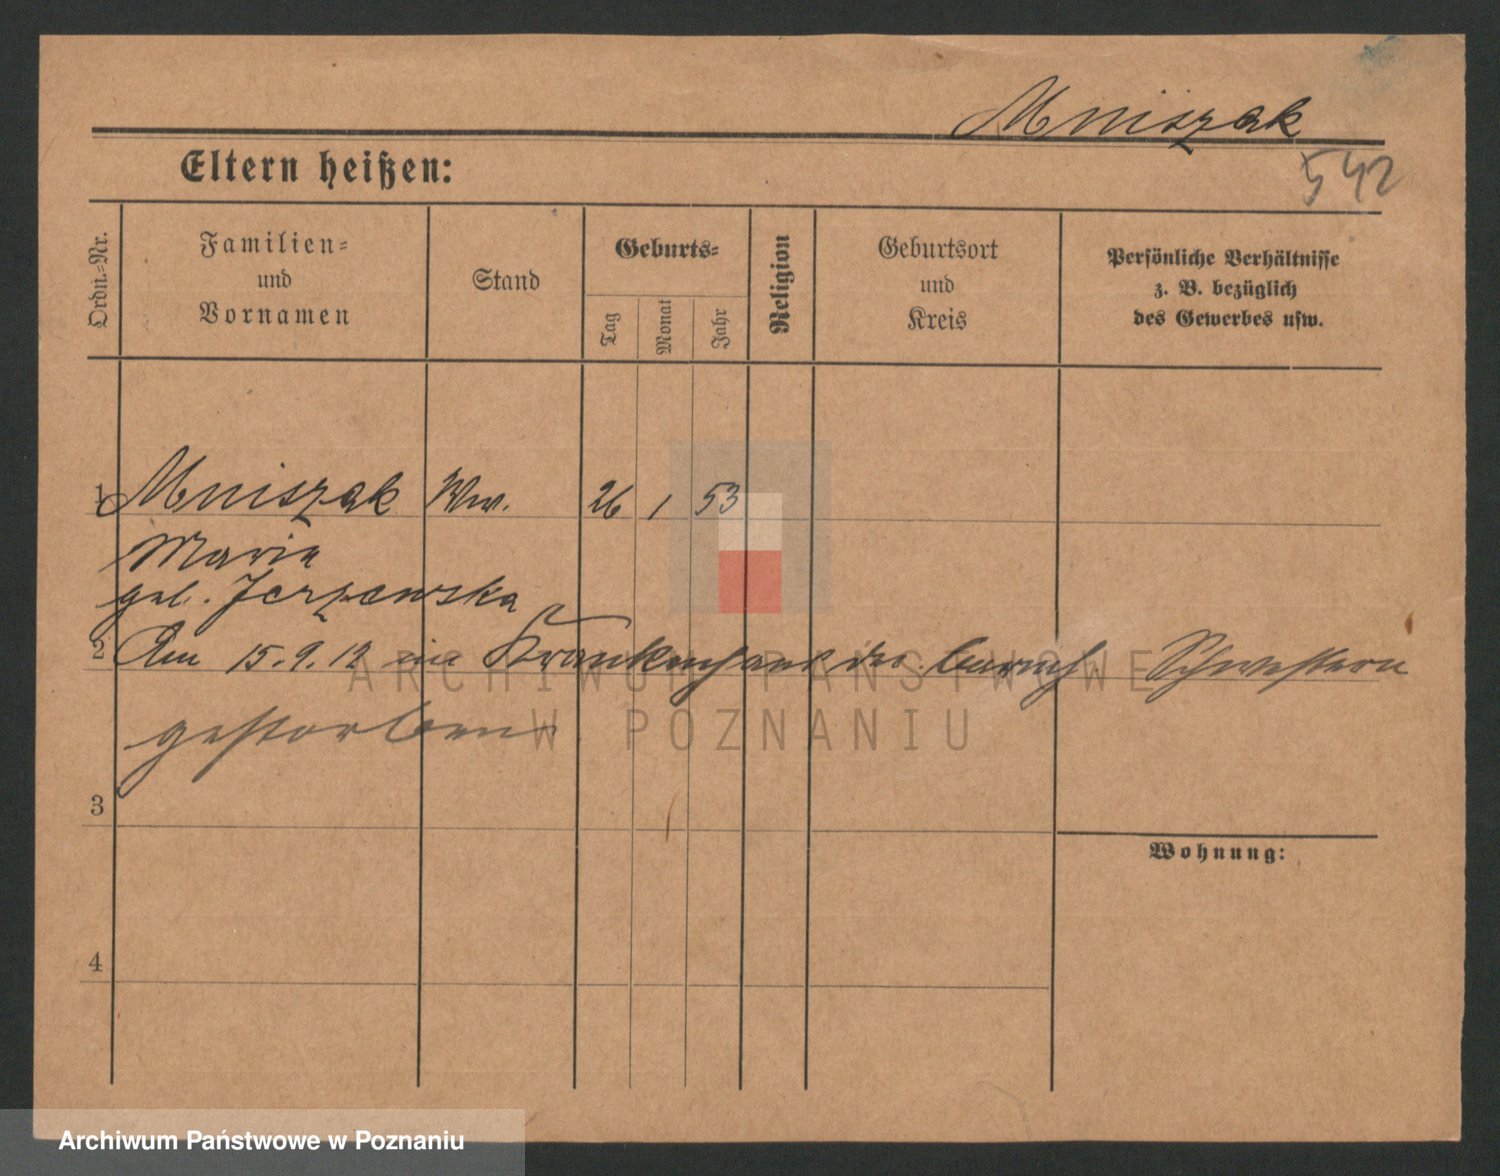 Mniszak
542
Eltern heißen:
Ordn.-Nr.
Familien-
und
Vornamen
Stand
Geburts-
Tag
Monat
Jahr
Religion
Geburtsort
und
Kreis
Persönliche Verhältnisse
z. B. bezüglich
des Gewerbes usw.
1 Mniszak Ww. 26 1 53
Marie
geb. Jerzewska
2 Am 15.9.12 im Krankenhaus der barmh Schwestern
gestorben
3
Wohnung:
4
ARCHIWUM PAŃSTWOWE
W POZNANIU
Archiwum Państwowe w Poznaniu